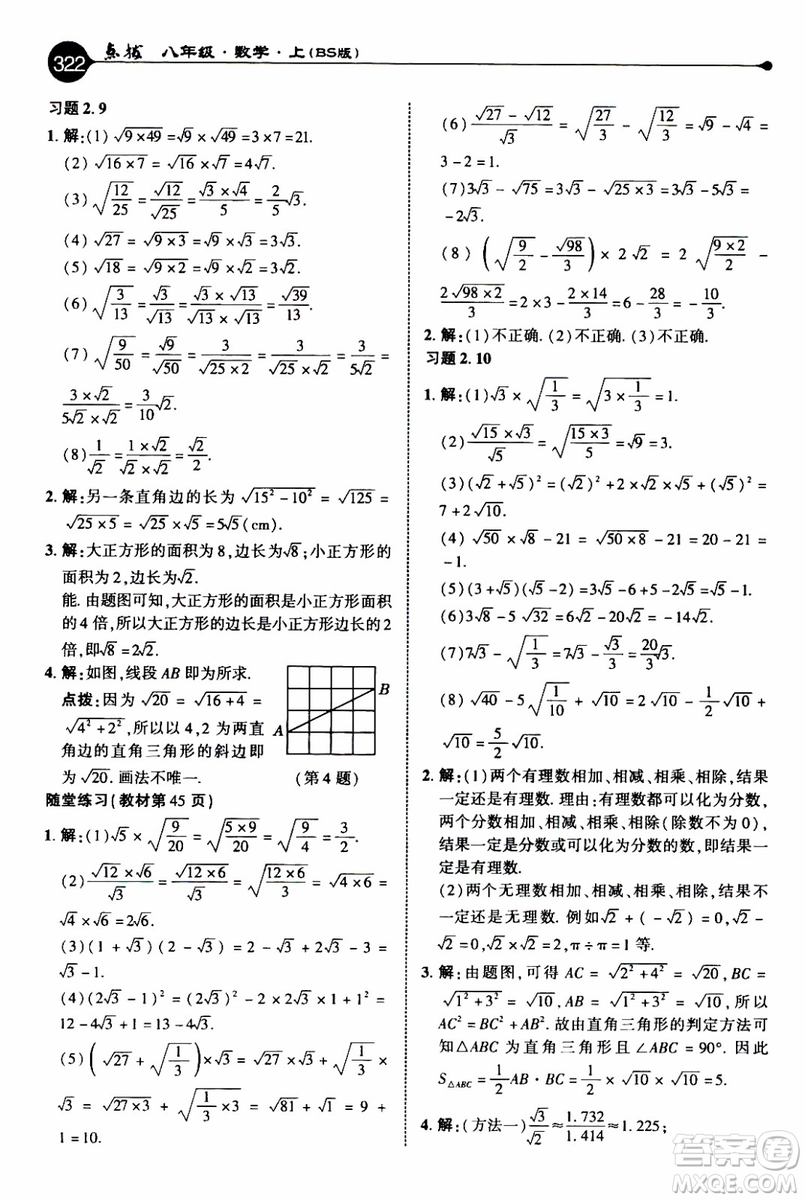 322 点拨 八年级·数学·上(BS版)
习题2.9
1. 解:(1) √(9×49) = √9 × √49 = 3×7 = 21.
(2) √(16×7) = √16 × √7 = 4√7.
(3) √(12/25) = √12/√25 = (√3×√4)/5 = (2/5)√3.
(4) √27 = √(9×3) = √9 × √3 = 3√3.
(5) √18 = √(9×2) = √9 × √2 = 3√2.
(6) √(3/13) = √3/√13 = (√3×√13)/(√13×√13) = √39/13.
(7) √(9/50) = √9/√50 = 3/√(25×2) = 3/(5√2) =
(3×√2)/(5√2×√2) = (3/10)√2.
(8) 1/√2 = (1×√2)/(√2×√2) = √2/2.
2. 解:另一条直角边的长为√(15²-10²) = √125 =
√(25×5) = √25 × √5 = 5√5(cm).
3. 解:大正方形的面积为8,边长为√8;小正方形的
面积为2,边长为√2.
能. 由题图可知,大正方形的面积是小正方形
的4倍,所以大正方形的边长是小正方形的2
倍,即√8 = 2√2.
4. 解:如图,线段AB即为所求.
点拨:因为√20 = √(16+4) =
√(4²+2²),所以以4,2为两直
角边的直角三角形的斜边即
为√20. 画法不唯一.
A
B
(第4题)
随堂练习(教材第45页)
1. 解:(1)√5 × √(9/20) = √((5×9)/20) = √(9/4) = 3/2.
(2) (√12×√6)/√3 = √(12×6)/√3 = √((12×6)/3) =
√4 × √6 = 2√6.
(3)(1+√3)(2-√3) = 2-√3+2√3-3 =
√3-1.
(4)(2√3-1)² = (2√3)²-2×2√3×1+1² =
12-4√3+1 = 13-4√3.
(5) (√27 + √(1/3)) × √3 = √27 × √3 + √(1/3) ×
√3 = √(27×3) + √(1/3×3) = √81 + √1 = 9+
1 = 10.
(6) (√27-√12)/√3 = √(27/3) - √(12/3) = √9-√4 =
3-2 = 1.
(7)3√3-√75 = 3√3-√(25×3) = 3√3-5√3 =
-2√3.
(8) (√(9/2) - √98/3) × 2√2 = 2√((9×2)/2) -
2√(98×2)/3 = 2×3-(2×14)/3 = 6-28/3 = -10/3.
2. 解:(1)不正确. (2)不正确. (3)不正确.
习题2.10
1. 解:(1)√3 × √(1/3) = √(3×1/3) = 1.
(2) (√15×√3)/√5 = √((15×3)/5) = √9 = 3.
(3)(√2+√5)² = (√2)²+2×√2×√5+(√5)² =
7+2√10.
(4) √50 × √8-21 = √(50×8)-21 = 20-21 =
-1.
(5)(3+√5)(√5-2) = 3√5-6+5-2√5 = √5-1.
(6)3√8-5√32 = 6√2-20√2 = -14√2.
(7)7√3-√(1/3) = 7√3-√3/3 = (20/3)√3.
(8) √40-5√(1/10)+√10 = 2√10-(1/2)√10+
√10 = (5/2)√10.
2. 解:(1)两个有理数相加、相减、相乘、相除,结果
一定还是有理数. 因为:有理数都可以化为分数,
两个分数相加、相减、相乘、相除(除数不为0),
结果都是可以化为分数的数,所以它们的结果一
定是有理数.
(2)两个无理数相加、相减、相乘、相除,结果
不一定还是无理数. 例如√2+(-√2) = 0,√2-
√2 = 0,√2×√2 = 2,π÷π = 1等.
3. 解:由题图,可得AC = √(2²+4²) = √20,BC =
√(1²+3²) = √10,AB = √(1²+3²) = √10,所以
AC² = BC²+AB². 故由直角三角形的判定方法可
知△ABC为直角三角形且∠ABC = 90°. 因此
S△ABC = (1/2)AB·BC = 1/2 × √10 × √10 = 5.
4. 解:(方法一)√3/√2 ≈ 1.732/1.414 ≈ 1.225;
答案圈
MXQE.COM